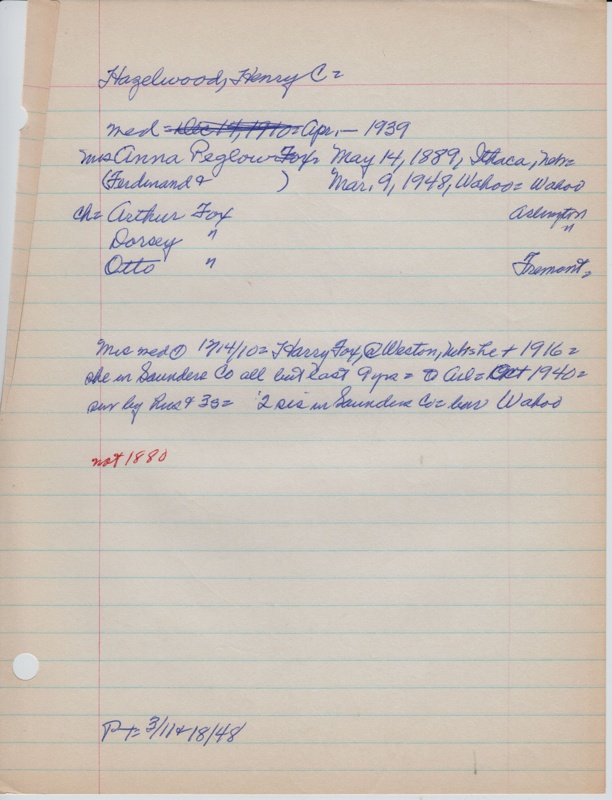 Hazelwood, Henry C =
med = Dec 14, 1910 = Apr. — 1939
Mrs Anna Peglow Fox = May 14, 1889, Ithaca, Neb =
(Ferdinand & ) Mar. 9, 1948, Wahoo = Wahoo
ch = Arthur Fox Arlington
Dorsey " "
Otto " Fremont =
Mrs med ① 12/14/10 = Harry Fox, @ Weston, Neb = he + 1916 =
she in Saunders Co all but last 9 yrs = to Arl = Oct 1940 =
sur by Hus & 3s = 2 sis in Saunders Co = bur Wahoo
not 1880
P-T = 3/11 & 18/48